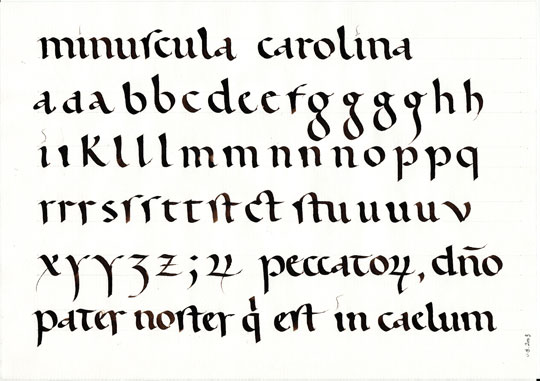 minuſcula carolina
a a a b b c d e e f g g g g h h
i ı K l l l m m n n n o p p q
r r r s ſ ſ t t ſt ct ſt u u u u v
x y y ʒ z ; ꝝ peccatoꝝ, dño
pater noſter qͥ eſt in caelum